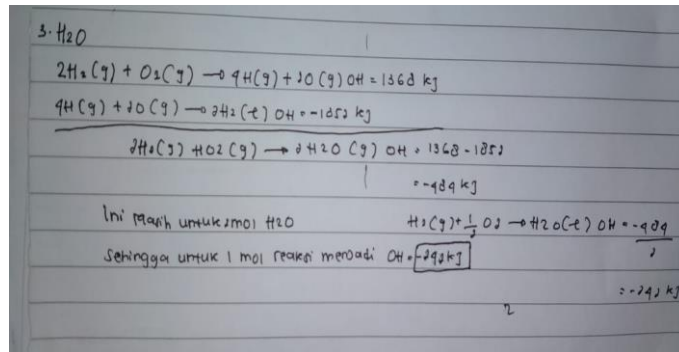 3. H2O
2H2(g) + O2(g) → 4H(g) + 2O(g) ΔH = 1368 kJ
4H(g) + 2O(g) → 2H2(l) ΔH = -1852 kJ
2H2(g) + O2(g) → 2H2O (g) ΔH = 1368 - 1852
= -484 kJ
Ini masih untuk 2 mol H2O H2(g) + 1/2 O2 → H2O(l) ΔH = -484/2
Sehingga untuk 1 mol reaksi menjadi ΔH = -242 kJ
= -242 kJ
2